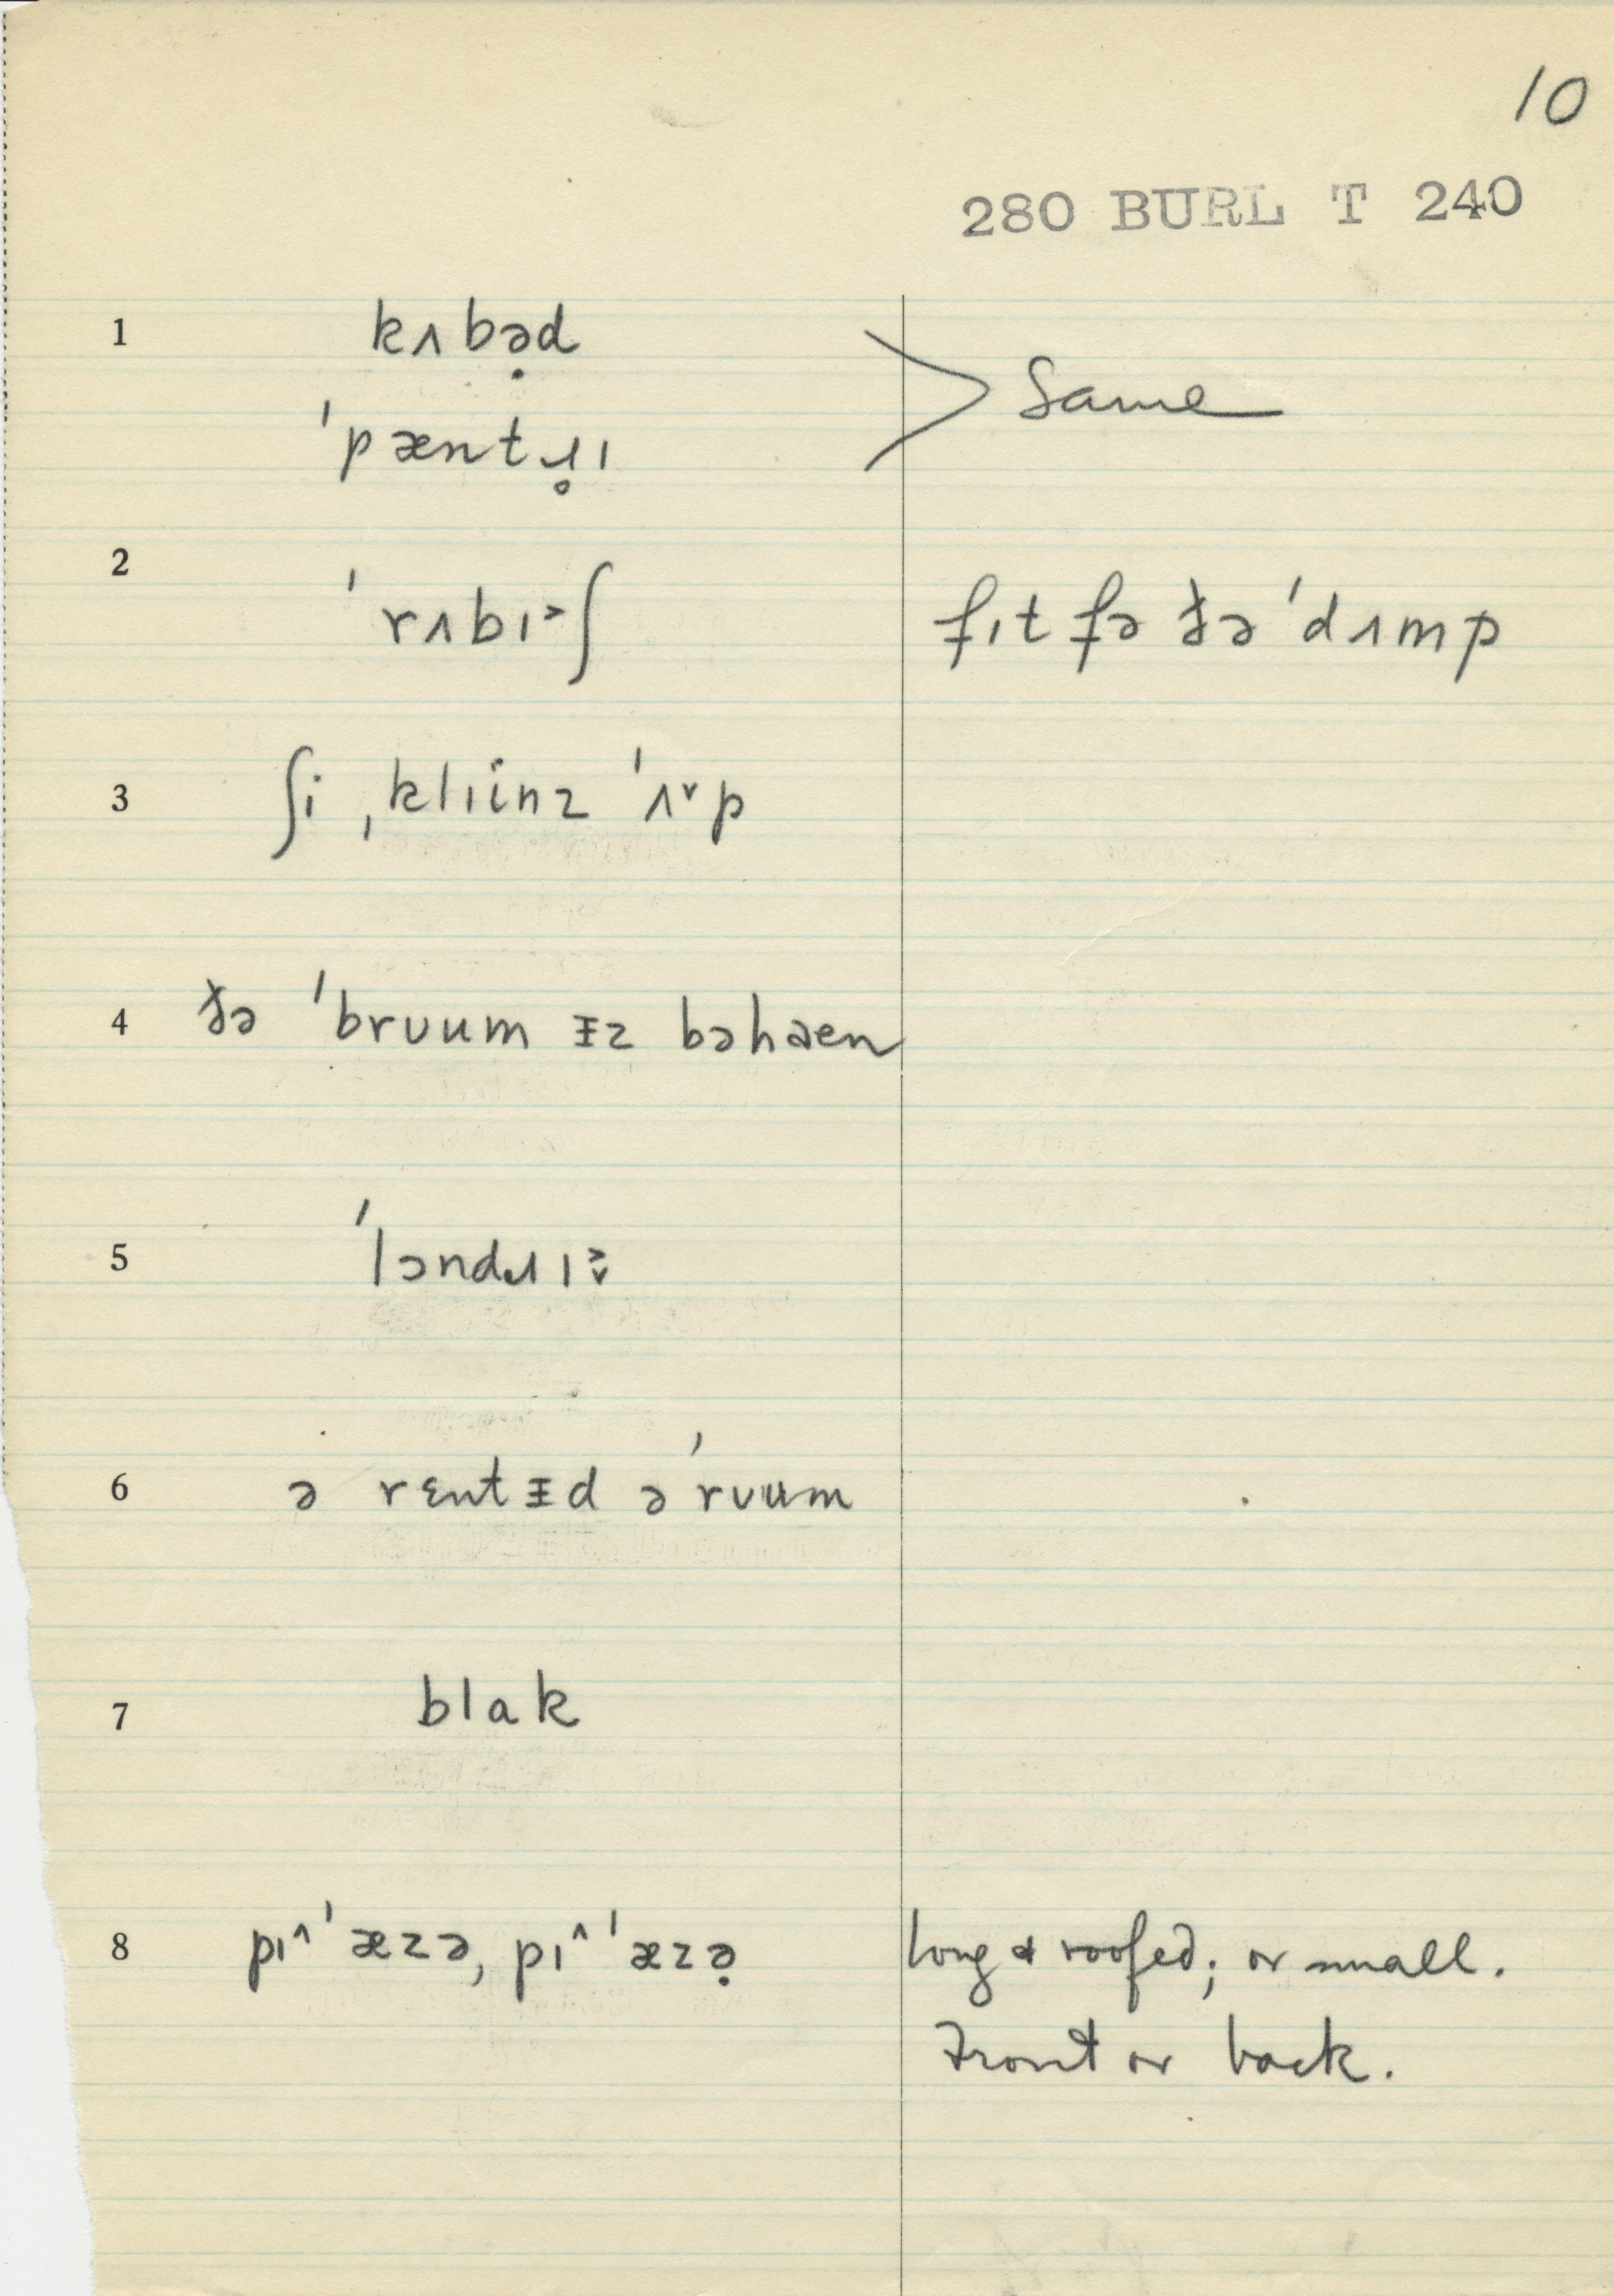 10
280 BURL T 240
1 kʌbə̣d > Same
ˈpæntɹ̥ɪ
2 ˈrʌbɪ˃ʃ fɪt fə ðə ˈdʌmp
3 ʃi ˌklɪinz ˈʌ˅p
4 ðə ˈbruum ᵻz bəhaen
5 ˈlɔndɹɪ˃˅
6 ə rɛntᵻd ə ˈrʊum
7 blak
8 pɪ˄ˈæzə, pɪ˄ˈæzə̣ long & roofed; or small.
Front or back.